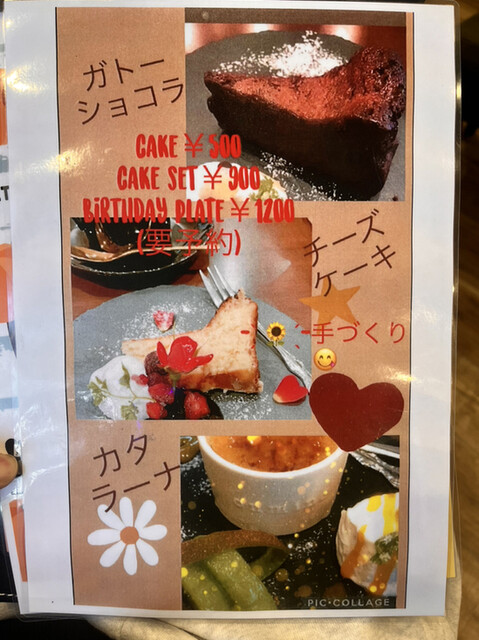 ガトー
ショコラ
CAKE¥500
CAKE SET¥900
BIRTHDAY PLATE¥1200
(要予約)
チーズ
ケーキ
手づくり
カタ
ラーナ
PIC•COLLAGE